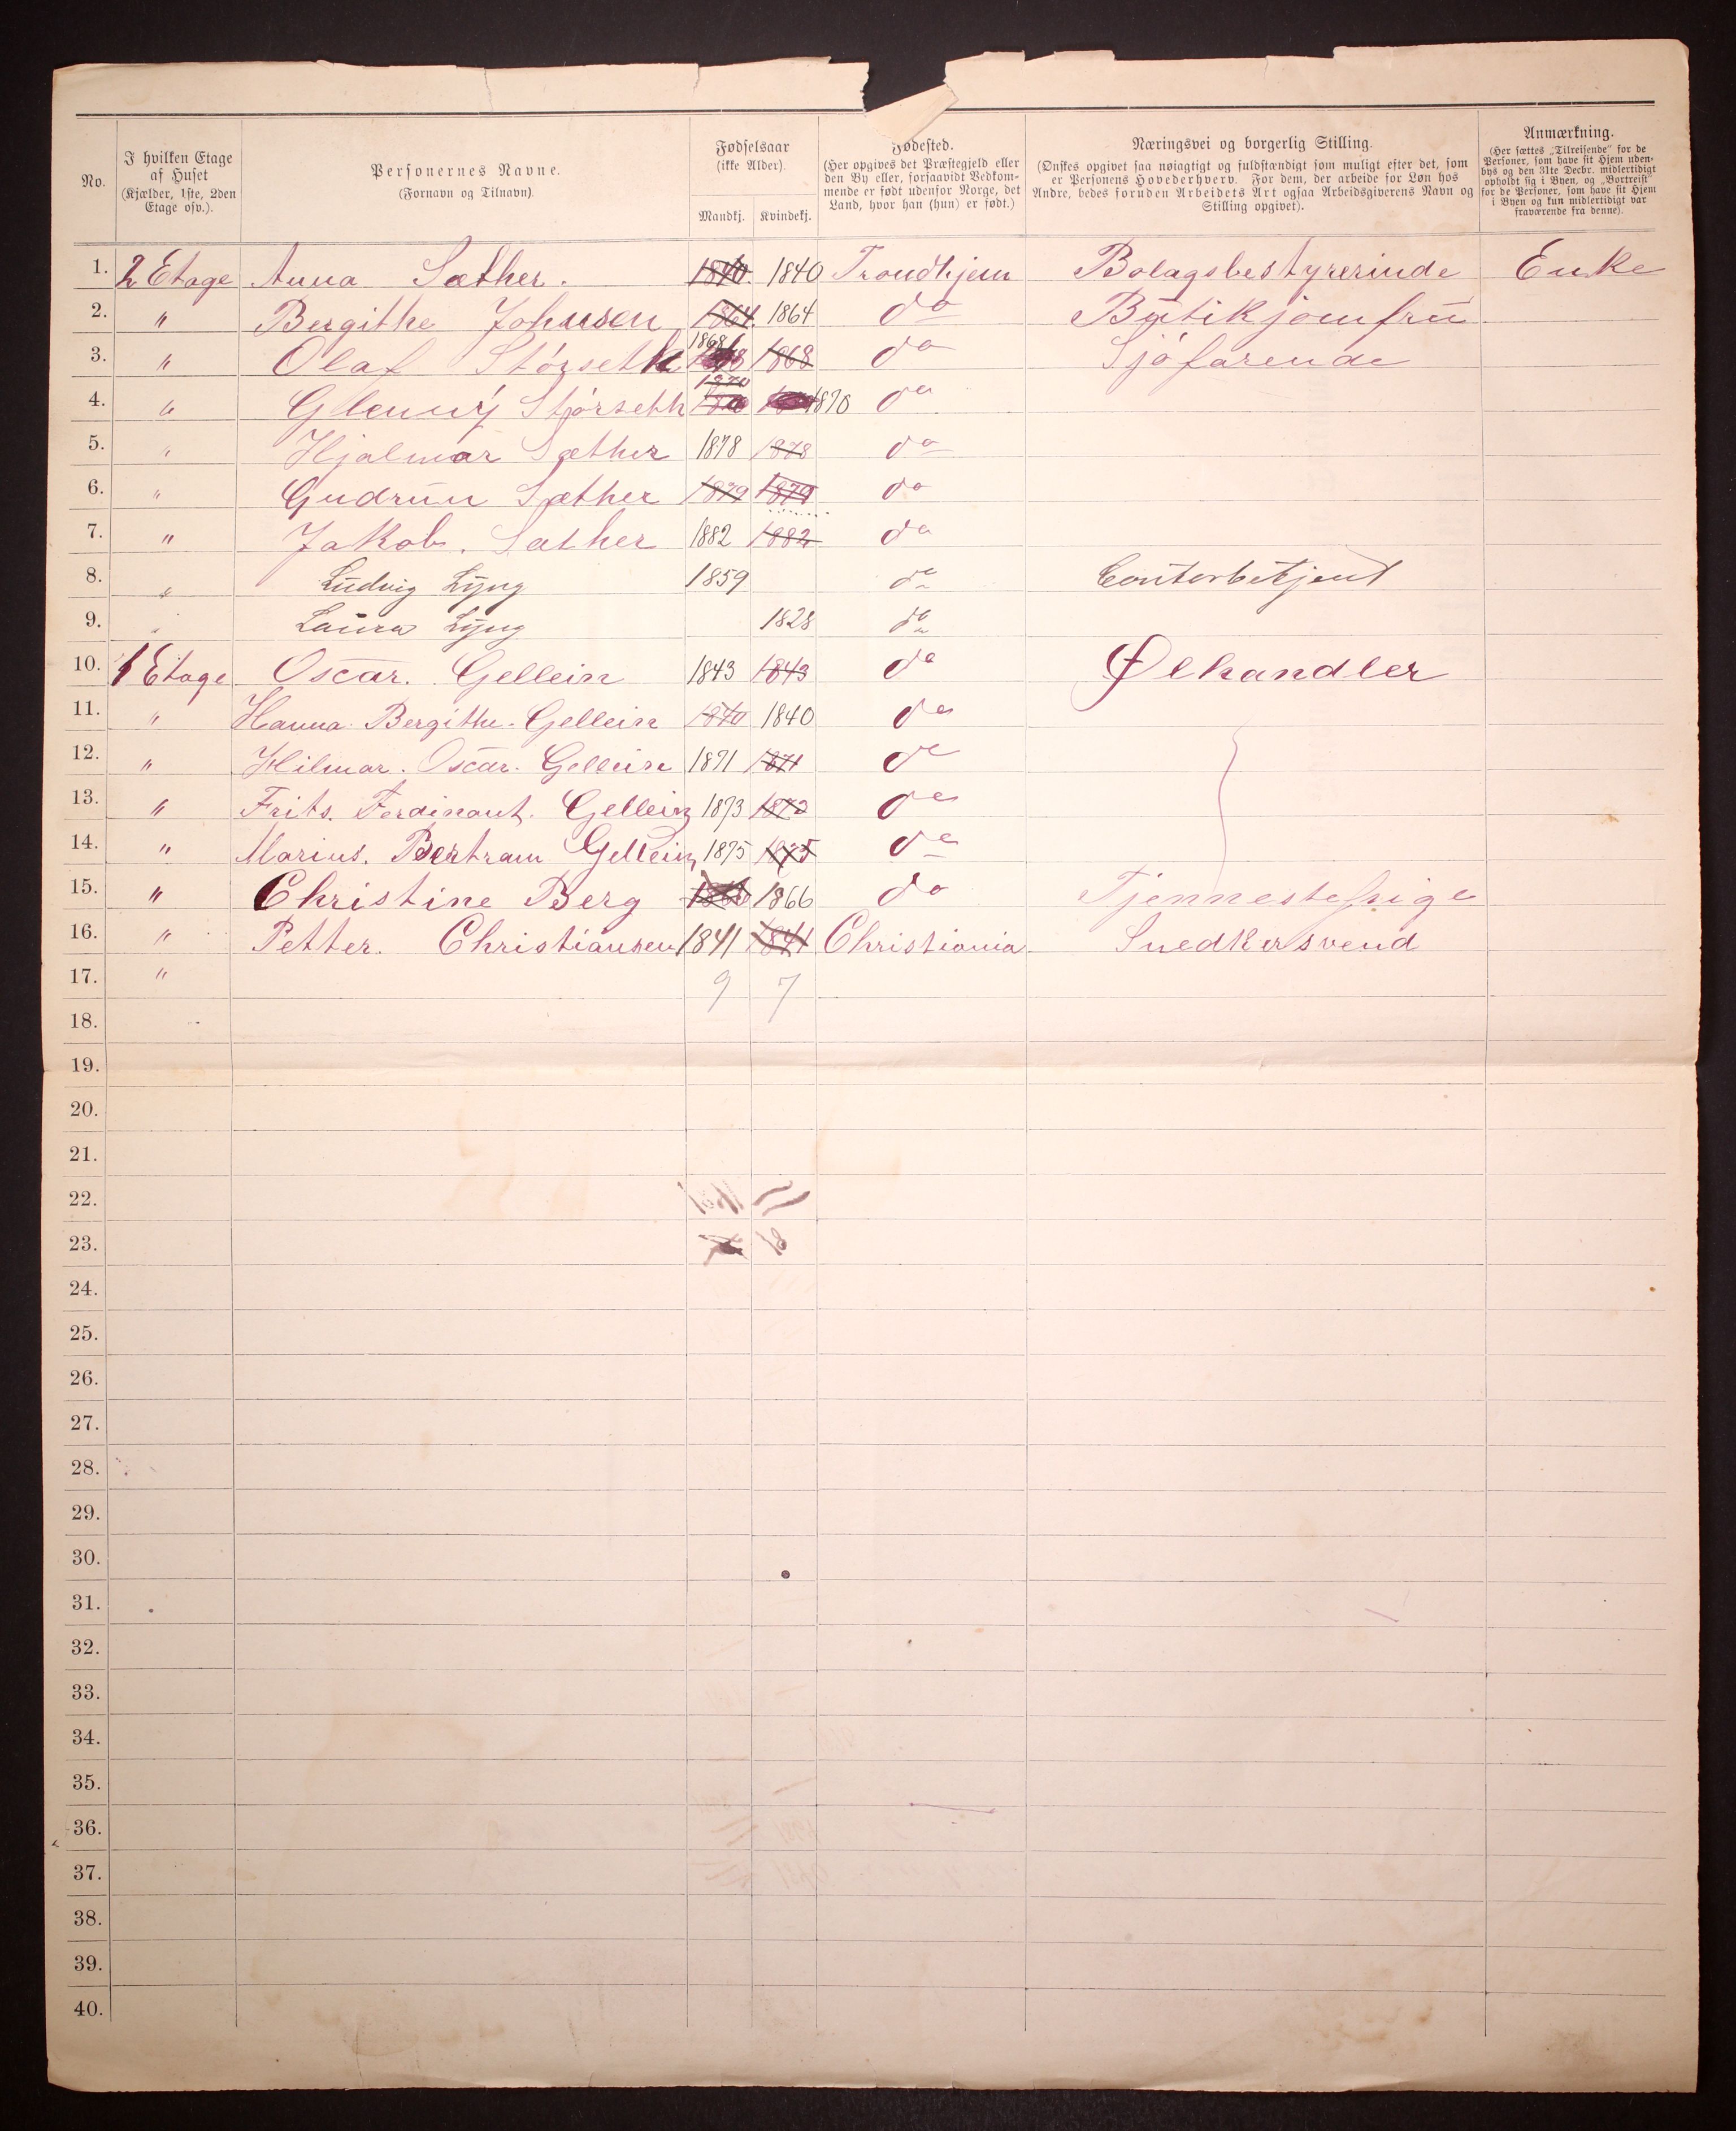 No. I hvilken Etage af Huset (Kjælder, 1ste, 2den Etage osv.). Personernes Navne. (Fornavn og Tilnavn). Fødselsaar (ikke Alder). Mandkj. Kvindekj. Fødested. (Her opgives det Præstegjeld eller den By eller, forsaavidt Vedkommende er født udenfor Norge, det Land, hvor han (hun) er født.) Næringsvei og borgerlig Stilling. (Ønskes opgivet saa nøiagtigt og fuldstændigt som muligt efter det, som er Personens Hovederhverv. For dem, der arbeide for Løn hos Andre, bedes foruden Arbeidets Art ogsaa Arbeidsgiverens Navn og Stilling opgivet). Anmærkning. (Her sættes „Tilreisende" for de Personer, som have sit Hjem udenbys og den 31te Decbr. midlertidigt opholdt sig i Byen, og „Bortreist" for de Personer, som have sit Hjem i Byen og kun midlertidigt var fraværende fra denne).
1. 2 Etage Anna Sæther. 1840. 1840 Trondhjem Bolagsbestyrerinde Enke
2. " Bergithe Johnsen 1864. 1864 do Butikjomfru
3. " Olaf Störseth 1868 1868 do Sjöfarende
4. " Glenny Störseth 1870 1870 do
5. " Hjalmar Sæther 1878 1878 do
6. " Gudrun Sæther 1879 1879 do
7. " Jakob. Sæther 1882 1882 do
8. " Ludvig Lyng 1859 do Contorbetjent
9. " Laura Lyng 1828 do
10. 1 Etage Oscar. Gellein 1843 1843 do Ølhandler
11. " Hanna Bergithe. Gellein 1840 1840 do
12. " Hilmar. Oscar. Gellein 1871 1871 do
13. " Frits. Ferdinant. Gellein 1873 1873 do
14. " Marius. Bertram Gellein 1875 1875 do
15. " Christine Berg 1866 1866 do Tjennestepige
16. " Petter. Christiansen 1841 1841 Christiania Snedkersvend
17. " 9 7
18.
19.
20.
21.
22.
23.
24.
25.
26.
27.
28.
29.
30.
31.
32.
33.
34.
35.
36.
37.
38.
39.
40.